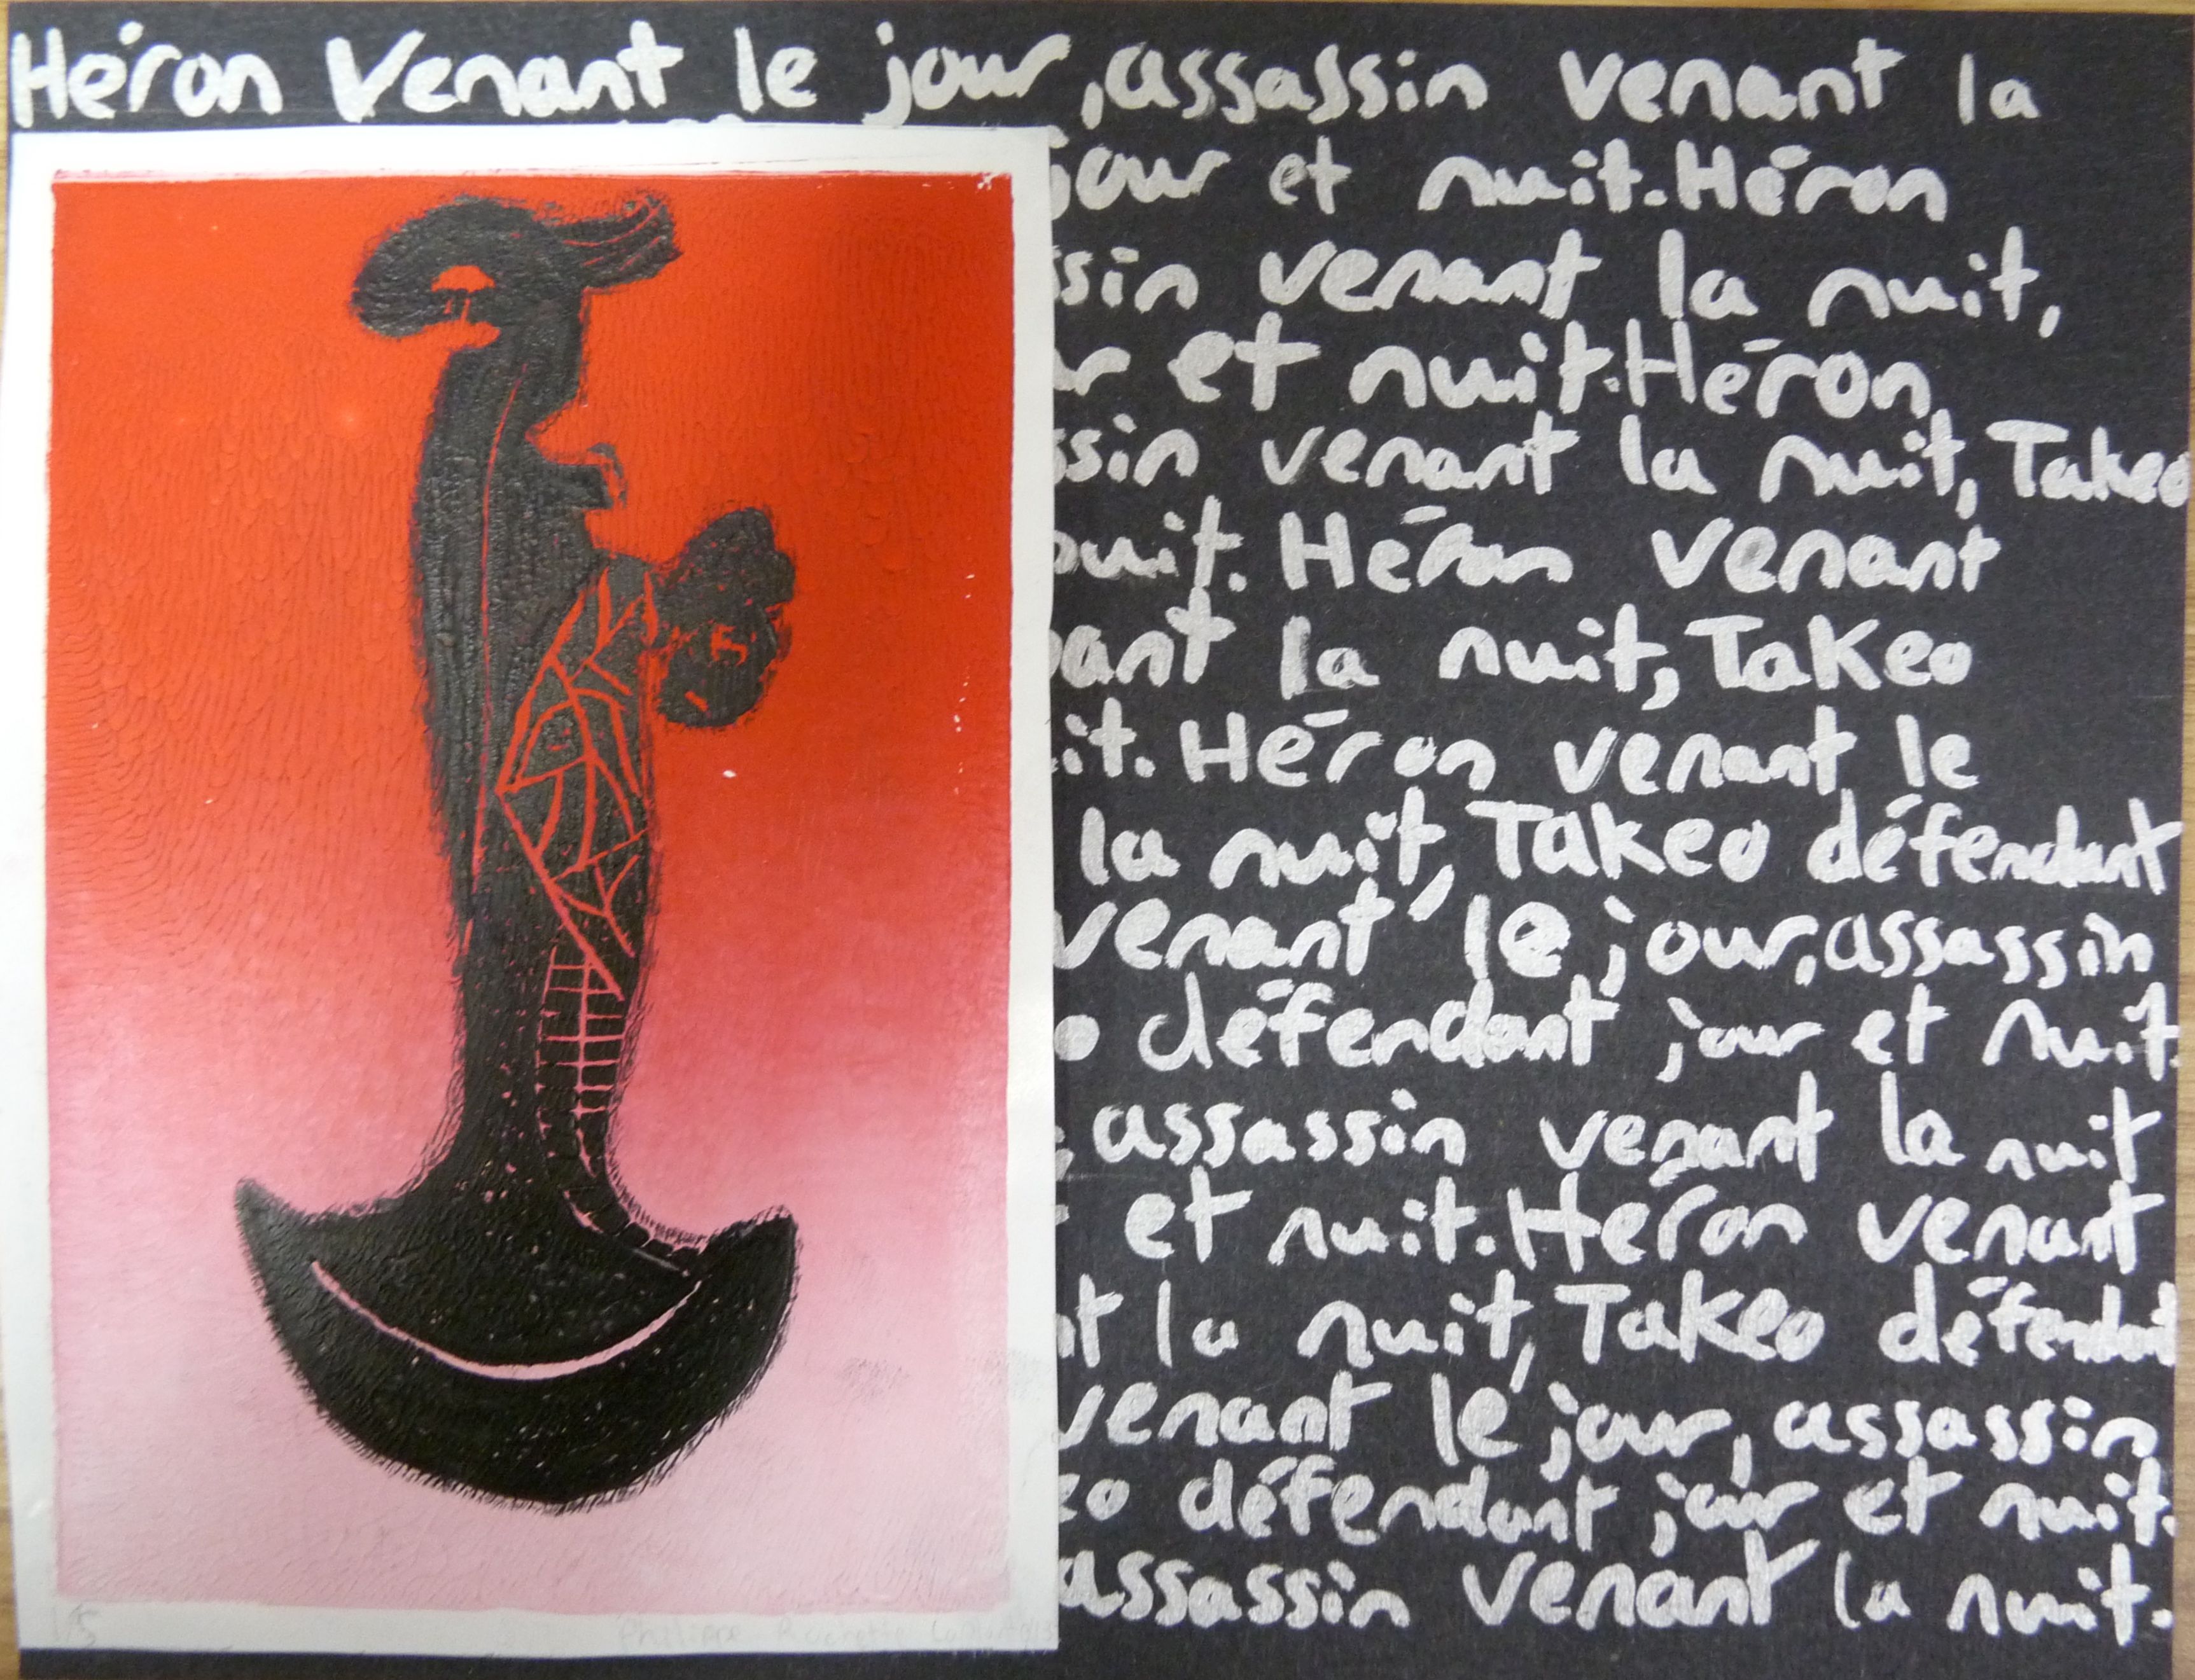 Héron Venant le jour, assassin venant la
jour et nuit. Héron
venant la nuit,
et nuit. Héron,
venant la nuit, Takeo
Héron venant
la nuit, Takeo
Héron venant le
la nuit, Takeo défendant
venant le jour, assassin
défendant jour et nuit.
assassin venant la nuit
et nuit. Héron venant
la nuit, Takeo défendant
venant le jour, assassin
défendant jour et nuit.
assassin venant la nuit.
Philippe